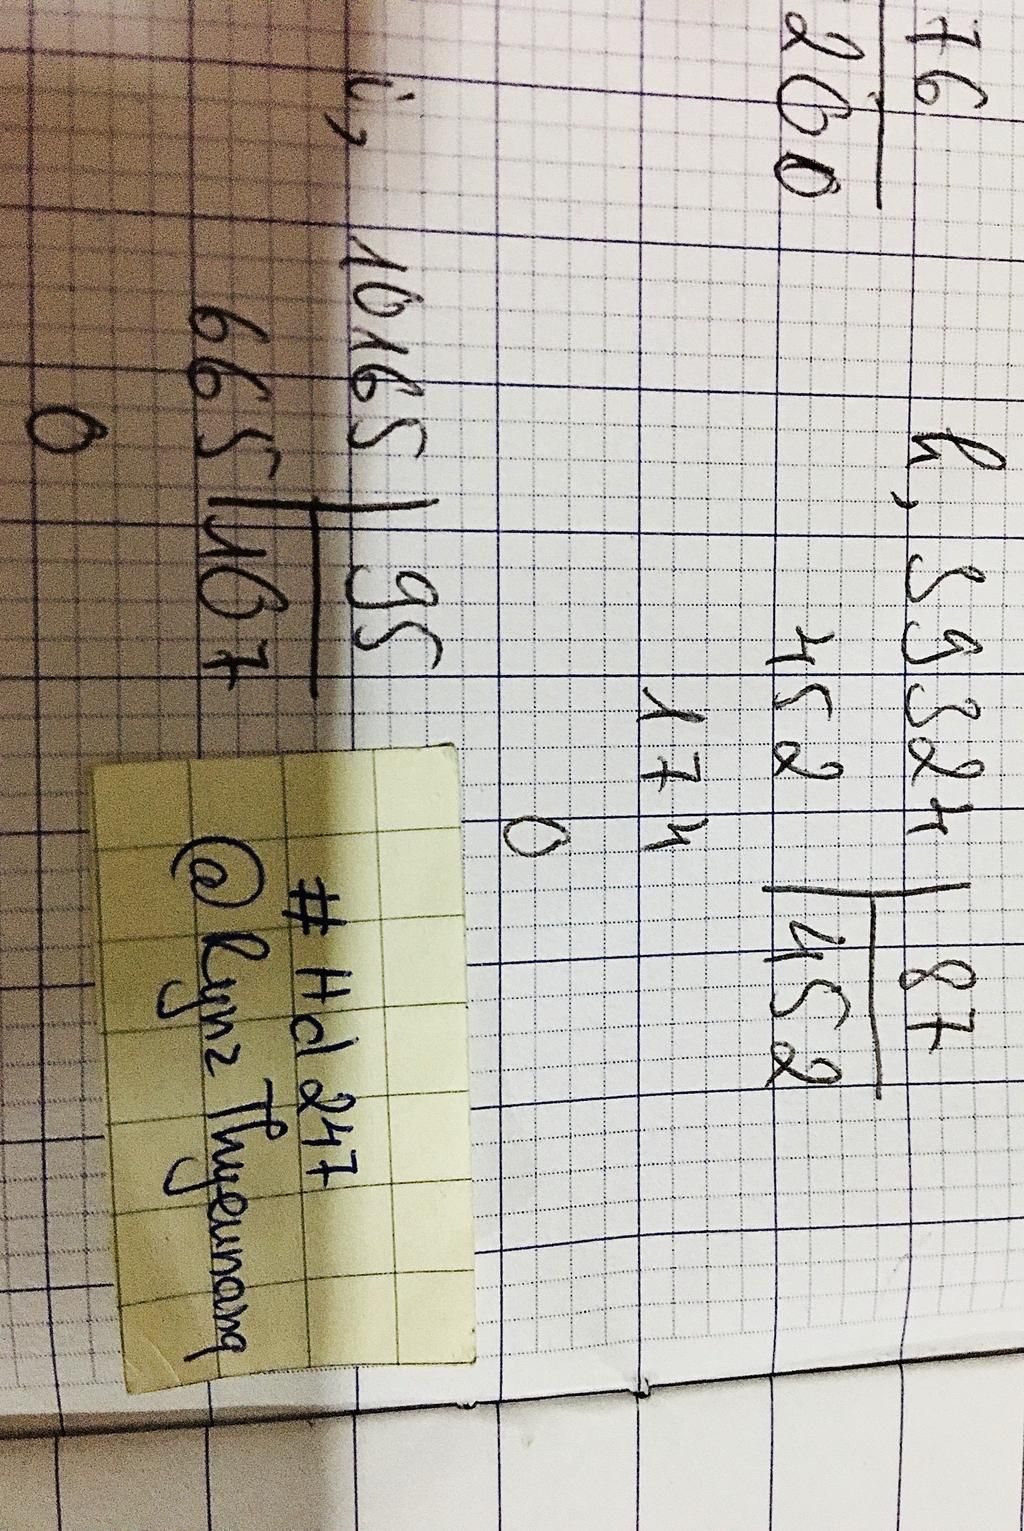 76
260
h, 39324 | 87
452 | 452
174
0
i, 10165 | 95
665 | 107
0
# Hd 247
@ Rynz Thyeunanq